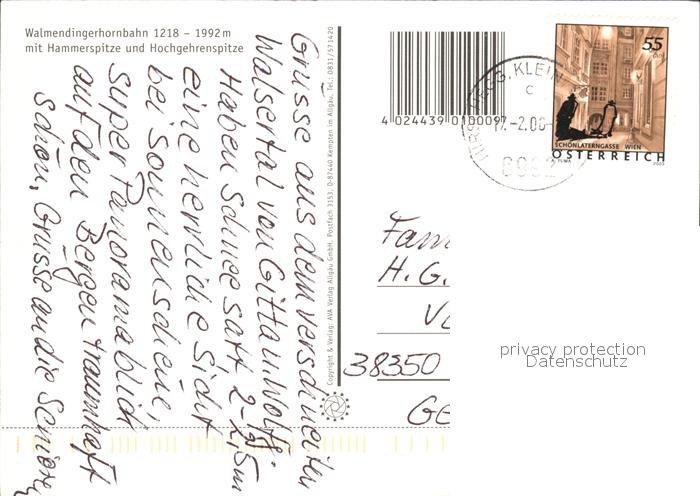 Walmendingerhornbahn 1218 – 1992 m
mit Hammerspitze und Hochgehrenspitze
Grüsse aus dem verschneiten
Walsertal von Gitta u. Wolfg.
Haben Schnee satt 2-2,5m
eine herrliche Sicht
bei Sonnenschein,
Super Panoramablick
auf den Bergen traumhaft
schön, Grüsse an die Senioren
Copyright & Verlag: AVA Verlag Allgäu GmbH, Postfach 3153, D-87440 Kempten im Allgäu, Tel.: 0831/571420
4 024439 010009
HIRSCHEGG, KLEIN
c
-2.06-
6992
55
SCHÖNLATERNGASSE WIEN
ÖSTERREICH
2002
Fam
H. G.
38350
GE
privacy protection
Datenschutz